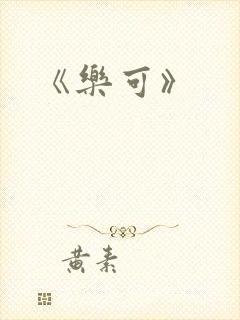 《樂可》
黃素